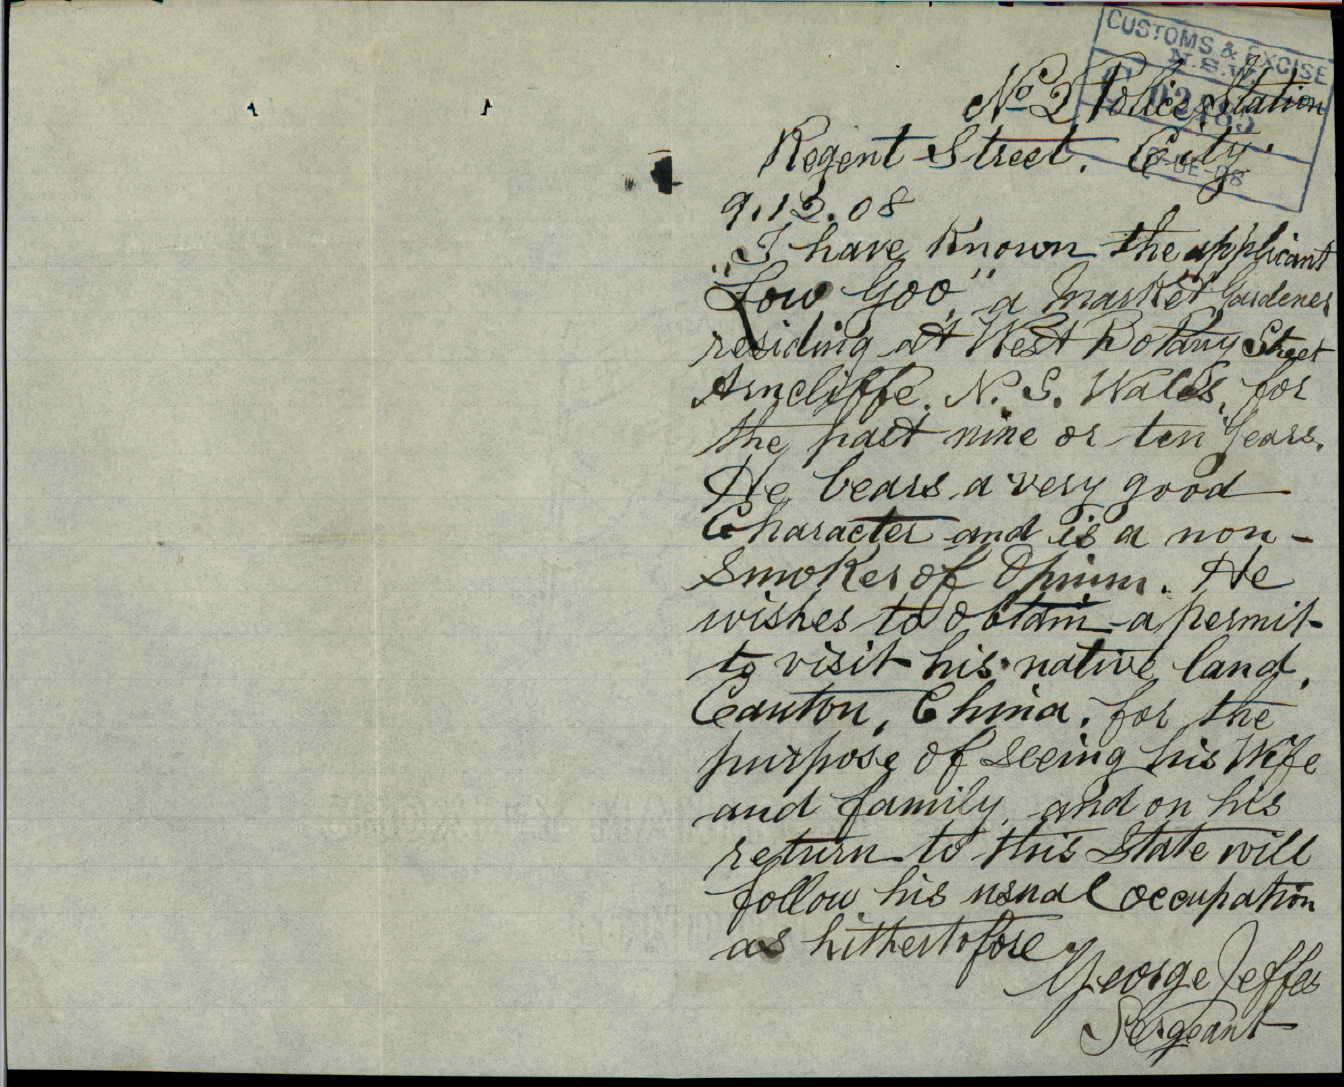 CUSTOMS & EXCISE
N.S.W.
No 2 Police Station
Regent Street. City.
9.12.08
I have known the applicant
"Low Goo" a Market Gardener
residing at West Botany Street
Arncliffe. N. S. Wales, for
the past nine or ten years.
He bears a very good
Character and is a non-
Smoker of Opium. He
wishes to obtain a permit
to visit his native land,
Canton, China, for the
purpose of seeing his Wife
and family, and on his
return to this State will
follow his usual occupation
as hithertofore
George Jeffes
Sergeant